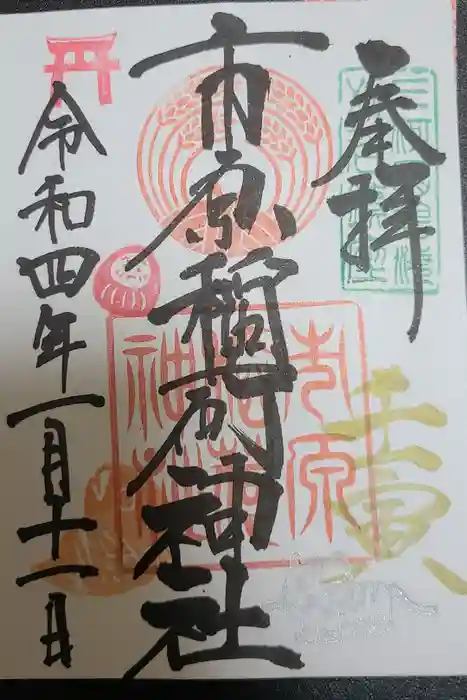 奉拝
市原稲荷神社
令和四年一月十一日
市原
稲荷
神社
壬寅